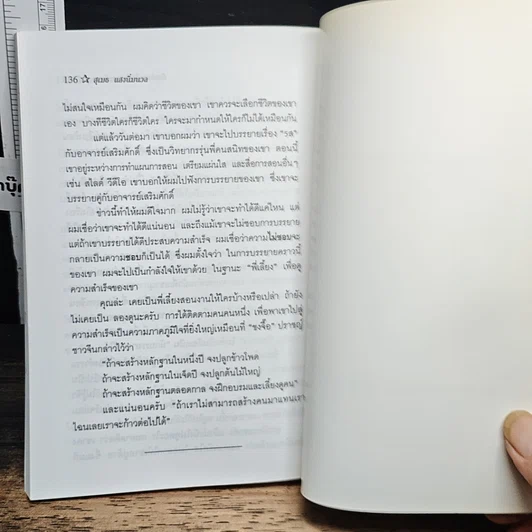 136 ☆ สุเมธ แสงนิ่มนวล
ไม่สนใจเหมือนกัน ผมคิดว่าชีวิตของเขา เขาควรจะเลือกชีวิตของเขา
เอง บางทีชีวิตใครก็ชีวิตใคร ใครจะมากำหนดให้ใครก็ไม่ได้เหมือนกัน
แต่แล้ววันต่อมา เขาบอกผมว่า เขาจะไปบรรยายเรื่อง "รส"
กับอาจารย์เสริมศักดิ์ ซึ่งเป็นวิทยากรรุ่นพี่คนสนิทของเขา ตอนนี้
เขาอยู่ระหว่างการทำแผนการสอน เตรียมแผ่นใส และสื่อการสอนอื่นๆ
เช่น สไลด์ วีดีโอ เขาบอกให้ผมไปฟังการบรรยายของเขา ซึ่งเขาจะ
บรรยายคู่กับอาจารย์เสริมศักดิ์
ข่าวนี้ทำให้ผมดีใจมาก ผมไม่รู้ว่าเขาจะทำได้ดีแค่ไหน แต่
ผมเชื่อว่าเขาจะทำได้ดีแน่นอน และถึงแม้เขาจะไม่ชอบการบรรยาย
แต่ถ้าเขาบรรยายได้ดีประสบความสำเร็จ ผมเชื่อว่าความไม่ชอบจะ
กลายเป็นความชอบก็เป็นได้ ซึ่งผมตั้งใจว่า ในการบรรยายคราวนี้
ของเขา ผมจะไปเป็นกำลังใจให้เขาด้วย ในฐานะ "พี่เลี้ยง" เพื่อดู
ความสำเร็จของเขา
คุณล่ะ เคยเป็นพี่เลี้ยงสอนงานให้ใครบ้างหรือเปล่า ถ้ายัง
ไม่เคยเป็น ลองดูนะครับ การได้ติดตามคนคนหนึ่ง เพื่อพาเขาไปสู่
ความสำเร็จเป็นความภาคภูมิใจที่ยิ่งใหญ่เหมือนที่ "ขงจื๊อ" ปราชญ์
ชาวจีนกล่าวไว้ว่า
"ถ้าจะสร้างหลักฐานในหนึ่งปี จงปลูกข้าวโพด
ถ้าจะสร้างหลักฐานในเจ็ดปี จงปลูกต้นไม้ใหญ่
ถ้าจะสร้างหลักฐานตลอดกาล จงฝึกอบรมและเลี้ยงดูคน"
และแน่นอนครับ "ถ้าเราไม่สามารถสร้างคนมาแทนเรา
ไฉนเลยเราจะก้าวต่อไปได้"